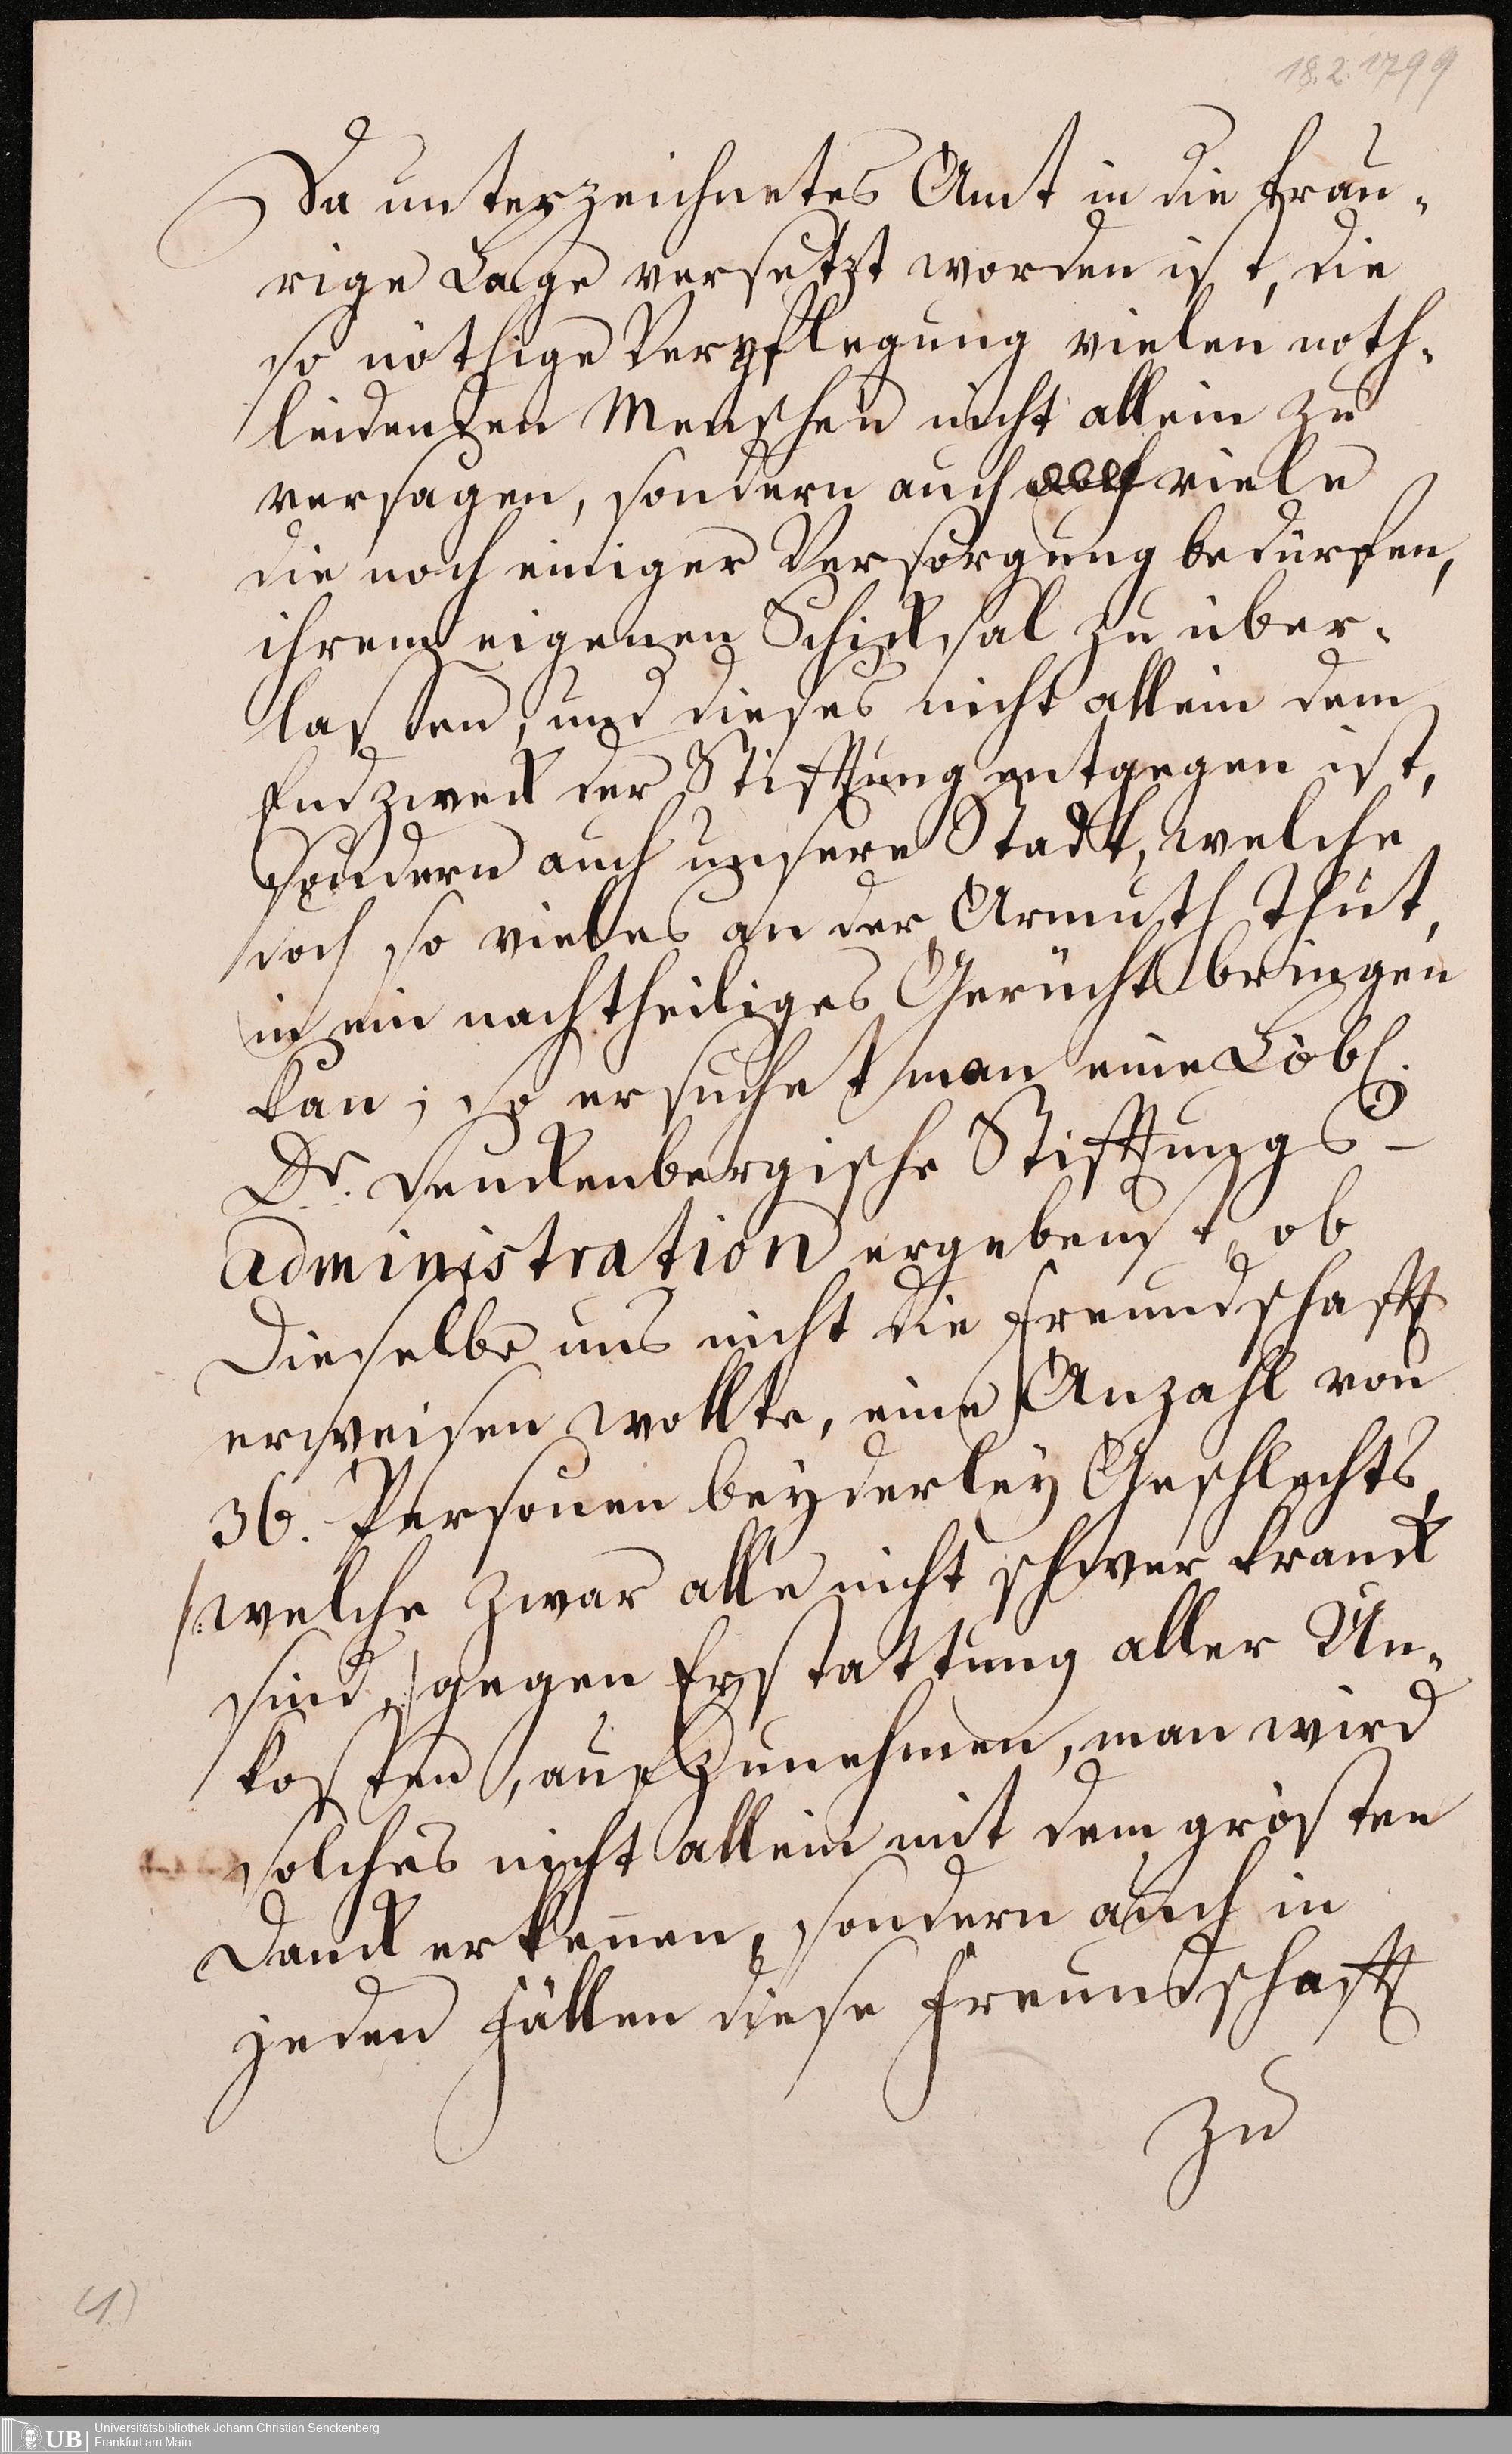 18.2.1799
Da unterzeichnetes Amt in die trau-
rige Lage versetzt worden ist, die
so nöthige Verpflegung vielen noth-
leidenden Menschen nicht allein zu
versagen, sondern auch viele
die noch einiger Versorgung bedürfen,
ihrem eigenen Schicksal zu über-
lassen, und dieses nicht allein dem
Endzweck der Stifftung entgegen ist,
sondern auch unsere Stadt, welche
doch so vieles an der Armuth thut,
in ein nachtheiliges Gerücht bringen
kan; so ersuchet man eine Löbl.
Dr. Senckenbergische Stifftungs-
Administration ergebenst, ob
Dieselbe uns nicht die Freundschafft
erweisen wollte, eine Anzahl von
36. Personen beyderley Geschlechts
/:welche zwar alle nicht schwer kranck
sind,:/ gegen Erstattung aller Un-
kosten, aufzunehmen, man wird
solches nicht allein mit dem grösten
Danck erkennen, sondern auch in
jeden Fällen diese Freundschafft
zu
(1)
UB
Universitätsbibliothek Johann Christian Senckenberg
Frankfurt am Main